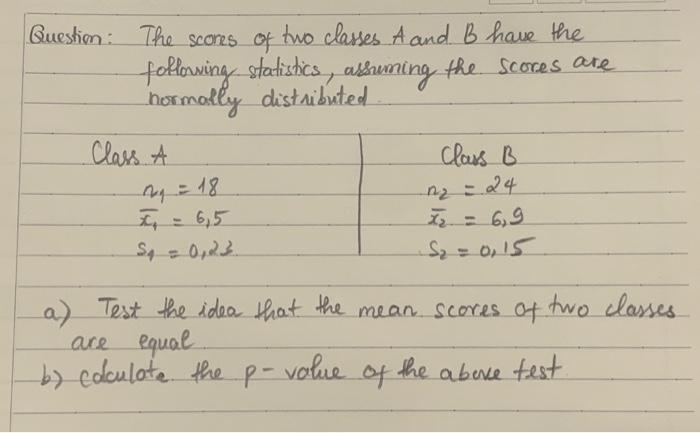 Question: The scores of two classes A and B have the
following statistics, assuming the scores are
normally distributed.
Class A
n₁ = 18
x̄₁ = 6,5
S₁ = 0,23
Class B
n₂ = 24
x̄₂ = 6,9
S₂ = 0,15
a) Test the idea that the mean scores of two classes
are equal
b) calculate the p-value of the above test